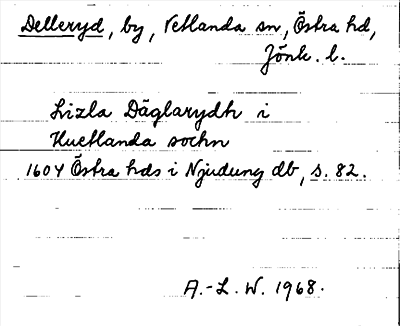 Delleryd, by, Vetlanda sn, Östra hd,
Jönk. l.
Lizla Däglarydh i
Huetlanda sochn
1604 Östra hds i Njudung db, s. 82.
A.-L. W. 1968.